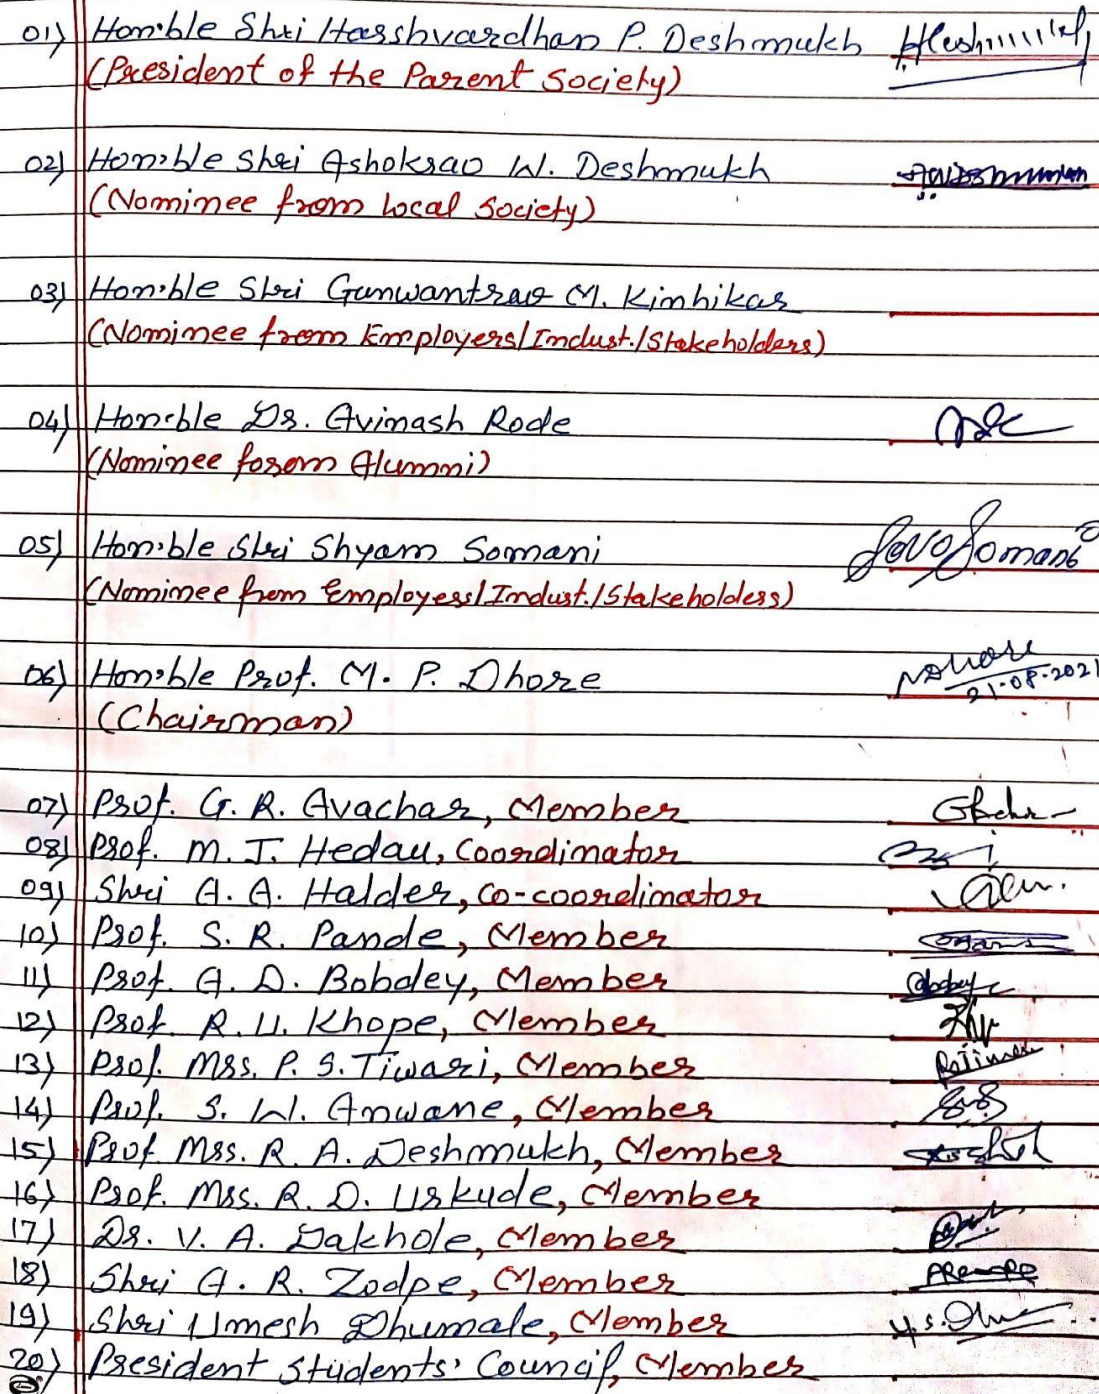 01) Hon'ble Shri Harshvardhan P. Deshmukh
(President of the Parent Society)
02) Hon'ble Shri Ashokrao W. Deshmukh
(Nominee from Local Society)
03) Hon'ble Shri Gunwantrao M. Kimhikar
(Nominee from Employers/Indust./Stakeholders)
04) Hon'ble Dr. Avinash Rode
(Nominee from Alumni)
05) Hon'ble Shri Shyam Somani Somani
(Nominee from Employers/Indust./Stakeholders)
06) Hon'ble Prof. M. P. Dhore
21.08.2021
(Chairman)
07) Prof. G. R. Avachar, Member
08) Prof. M. J. Hedau, Coordinator
09) Shri A. A. Halder, Co-coordinator
10) Prof. S. R. Pande, Member
11) Prof. A. D. Bobdey, Member
12) Prof. R. U. Khope, Member
13) Prof. Mrs. P. S. Tiwari, Member
14) Prof. S. W. Anwane, Member
15) Prof Mrs. R. A. Deshmukh, Member
16) Prof. Mrs. R. D. Urkude, Member
17) Dr. V. A. Dakhole, Member
18) Shri A. R. Zodpe, Member
19) Shri Umesh Dhumale, Member
20) President Students' Council, Member